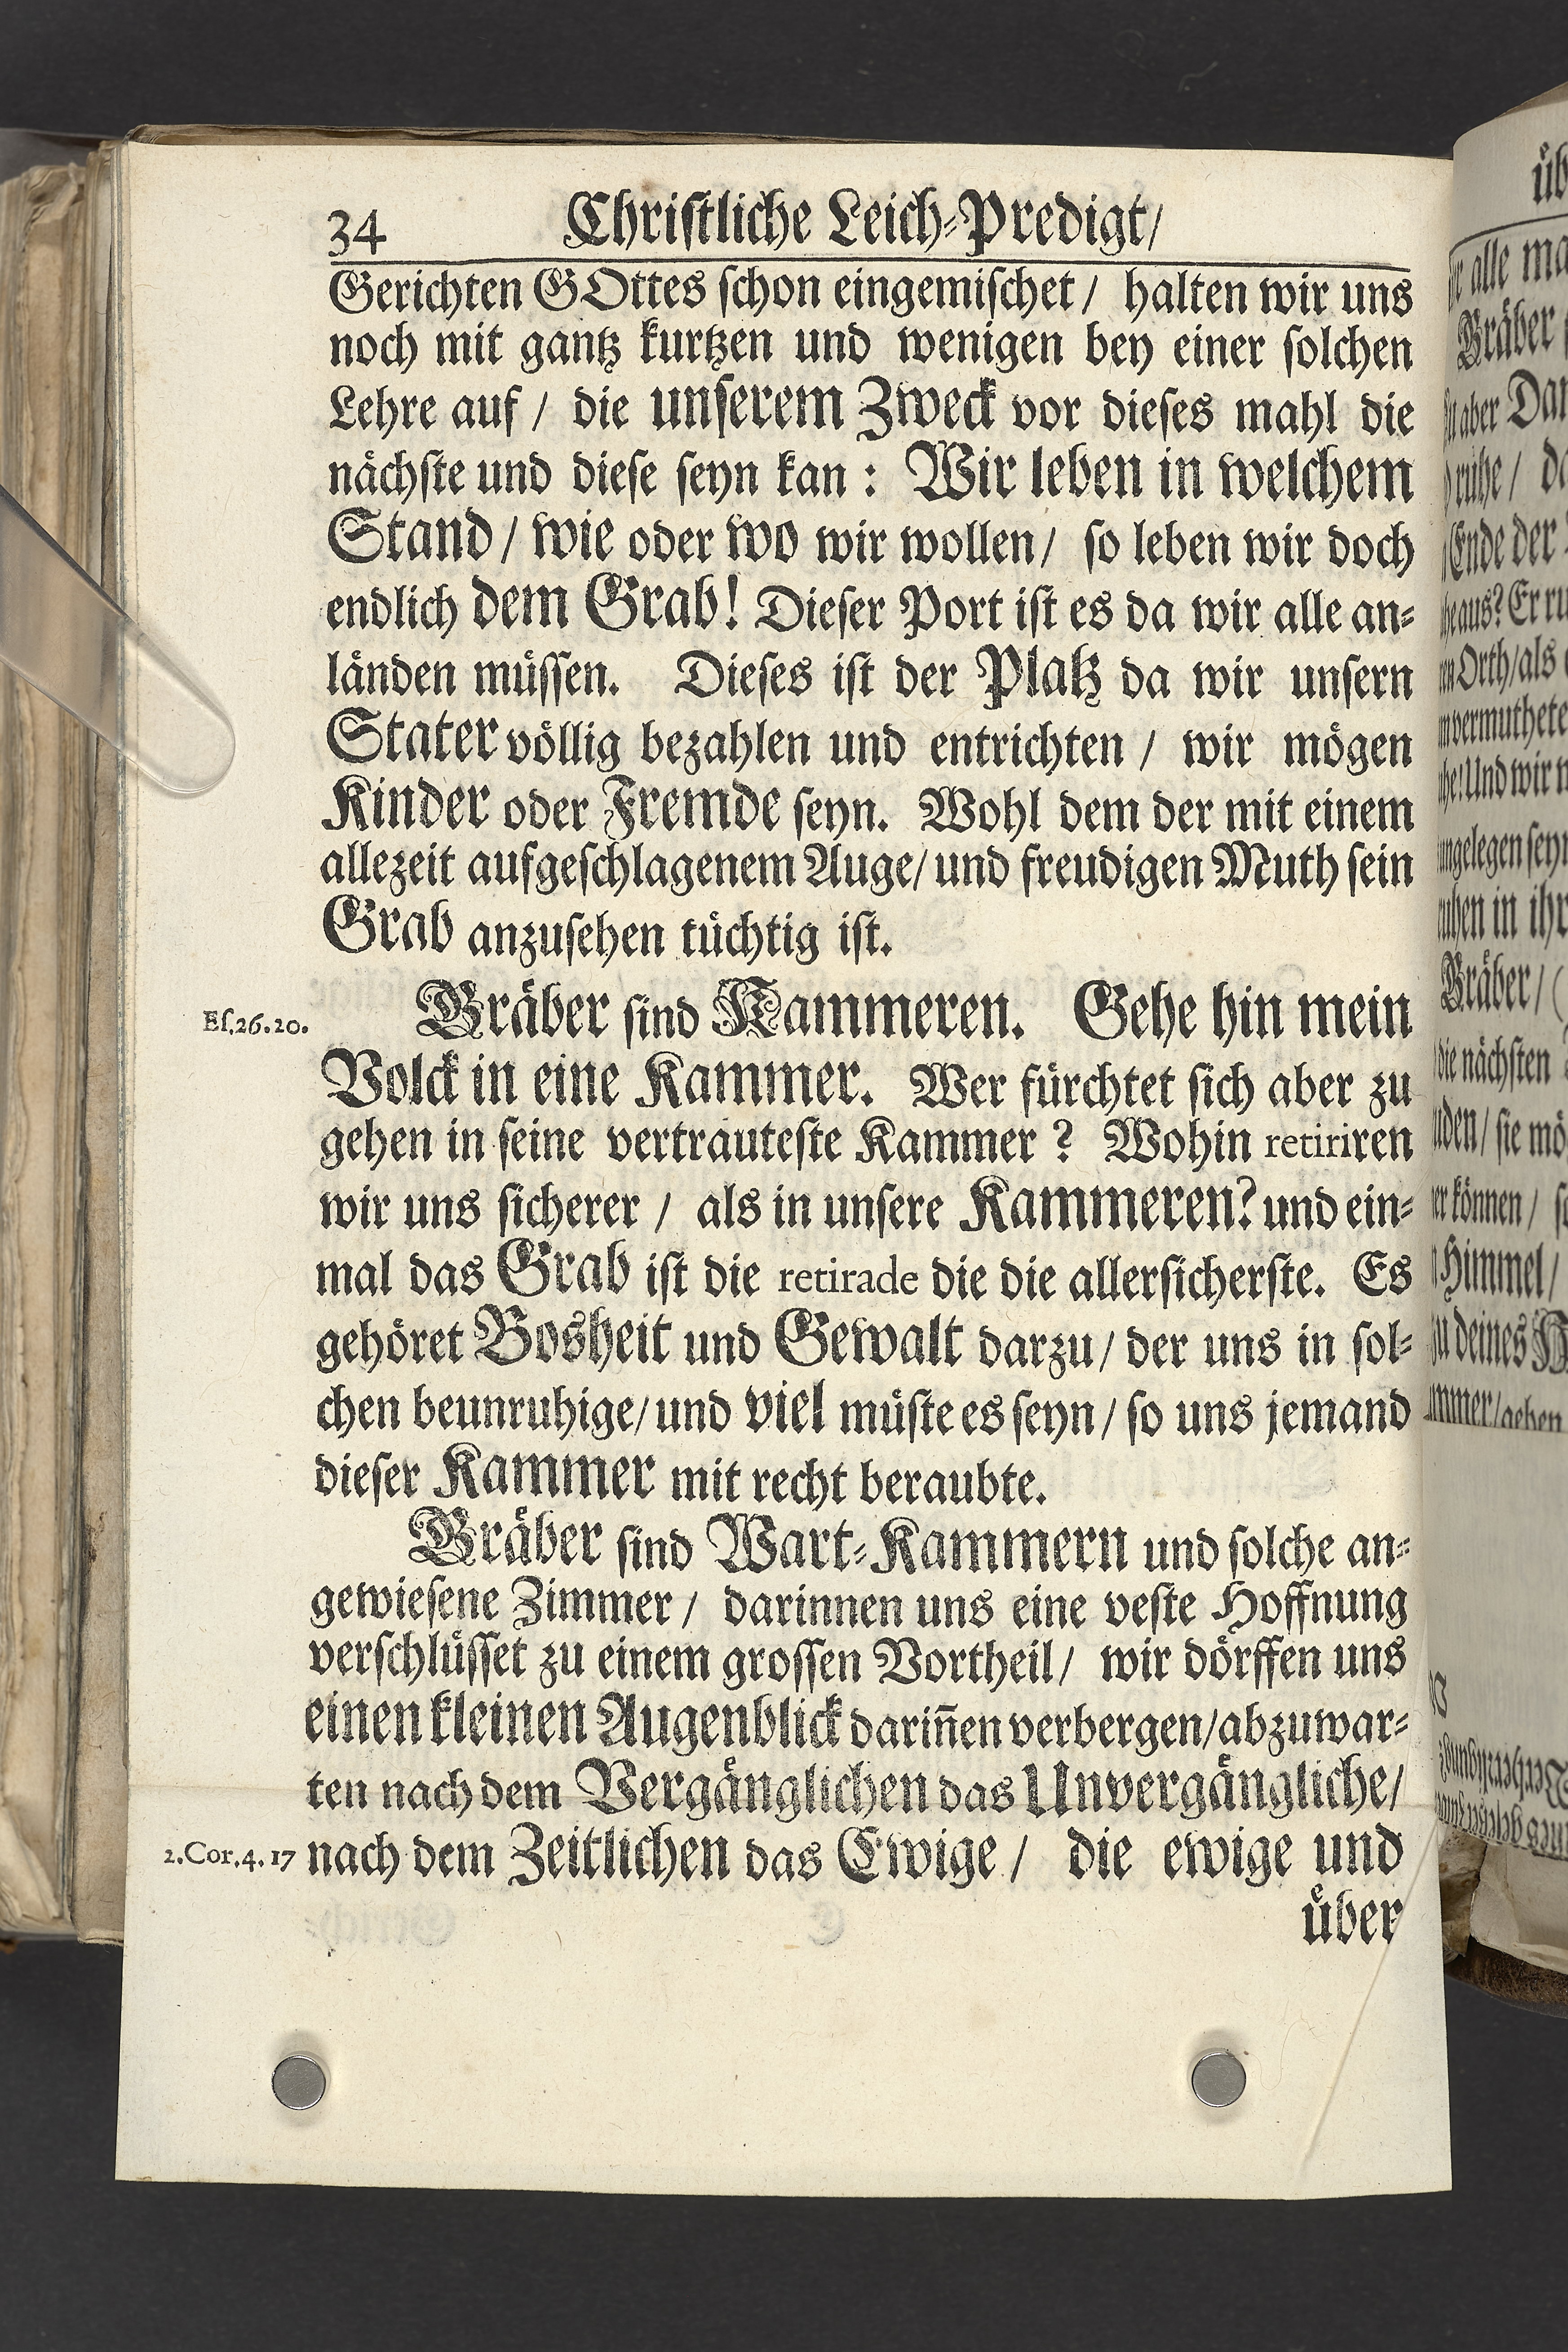 34 Christliche Leich-Predigt/
Gerichten GOttes schon eingemischet / halten wir uns
noch mit gantz kurtzen und wenigen bey einer solchen
Lehre auf / die unserem Zweck vor dieses mahl die
nächste und diese seyn kan: Wir leben in welchem
Stand / wie oder wo wir wollen / so leben wir doch
endlich dem Grab! Dieser Port ist es da wir alle an-
länden müssen. Dieses ist der Platz da wir unsern
Stater völlig bezahlen und entrichten / wir mögen
Kinder oder Fremde seyn. Wohl dem der mit einem
allezeit aufgeschlagenem Auge/ und freudigen Muth sein
Grab anzusehen tüchtig ist.
Es. 26. 20. Gräber sind Kammeren. Gehe hin mein
Volck in eine Kammer. Wer fürchtet sich aber zu
gehen in seine vertrauteste Kammer? Wohin retiriren
wir uns sicherer / als in unsere Kammeren? und ein-
mal das Grab ist die retirade die die allersicherste. Es
gehöret Bosheit und Gewalt darzu / der uns in sol-
chen beunruhige/ und viel müste es seyn / so uns jemand
dieser Kammer mit recht beraubte.
Gräber sind Wart-Kammern und solche an-
gewiesene Zimmer / darinnen uns eine veste Hoffnung
verschlüsset zu einem grossen Vortheil / wir dörffen uns
einen kleinen Augenblick dariñen verbergen/abzuwar-
ten nach dem Vergänglichen das Unvergängliche/
2. Cor. 4. 17 nach dem Zeitlichen das Ewige / die ewige und
über
üb
alle ma
Gräber
aber Dar
ruhe / da
Ende der
aus? Er ru
Orth/als
vermuthete
Und wir
gelegen seyn
in ihr
Gräber / (
die nächsten
sie mö
können / s
Himmel /
deines K
gehen